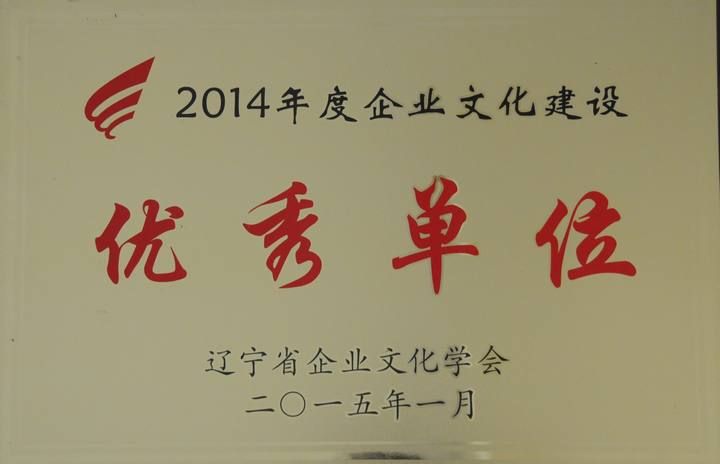 2014年度企业文化建设
优秀单位
辽宁省企业文化学会
二〇一五年一月